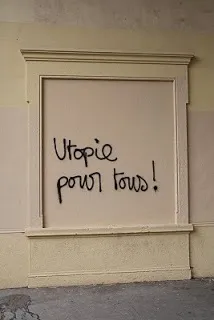 Utopie
pour tous!